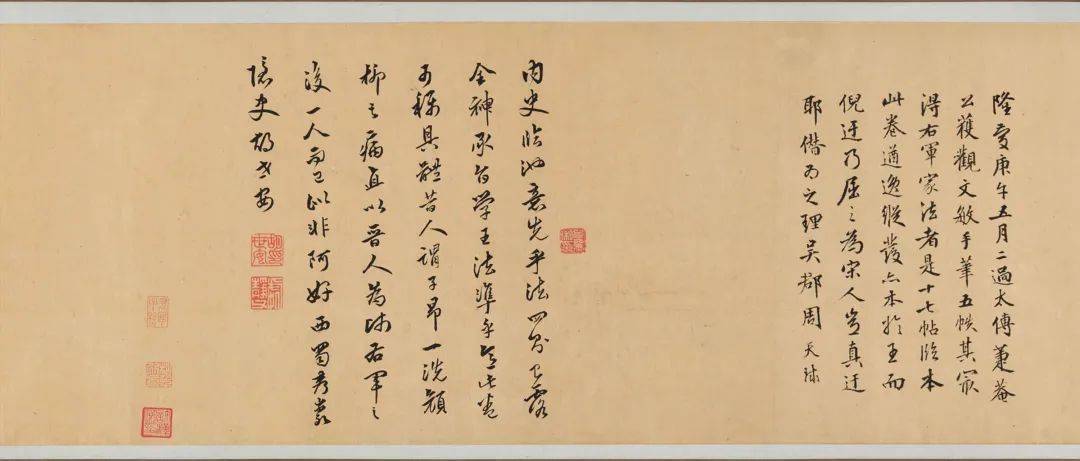 隆慶庚午五月二過太傅蒹葭
公獲觀文敏手筆五帙其最
得右軍家法者是十七帖臨本
此卷遒逸縱發亦本於王而
倪迂乃屈之為宋人豈真迂
耶僭為之理吳郡周天球
內史臨池意先乎法四出下露
全神承旨學王法準乎意此卷
可稱具體昔人謂子昂一洗顏
柳之病直以晉人為師右軍之
後一人而已以非阿好西蜀
隱史胡世安